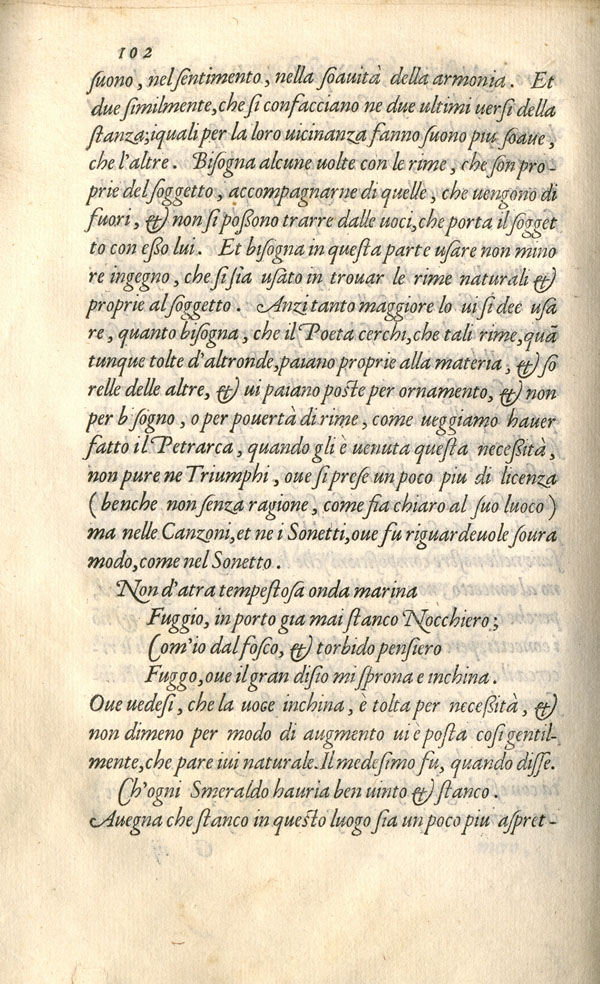 102
suono, nel sentimento, nella soauità della armonia. Et
due similmente, che si confacciano ne due ultimi uersi della
stanza; iquali per la loro uicinanza fanno suono piu soaue,
che l'altre. Bisogna alcune uolte con le rime, che son pro-
prie del soggetto, accompagnarne di quelle, che uengono di
fuori, & non si possono trarre dalle uoci, che porta il sogget
to con esso lui. Et bisogna in questa parte usare non mino
re ingegno, che si sia usato in trouar le rime naturali &
proprie al soggetto. Anzi tanto maggiore lo ui si dee usa
re, quanto bisogna, che il Poeta cerchi, che tali rime, quã
tunque tolte d'altronde, paiano proprie alla materia, & so
relle delle altre, & ui paiano poste per ornamento, & non
per b sogno, o per pouertà di rime, come ueggiamo hauer
fatto il Petrarca, quando gli è uenuta questa necessità,
non pure ne Triumphi, oue si prese un poco piu di licenza
(benche non senza ragione, come fia chiaro al suo luoco)
ma nelle Canzoni, et ne i Sonetti, oue fu riguardeuole soura
modo, come nel Sonetto.
Non d'atra tempestosa onda marina
Fuggio, in porto gia mai stanco Nocchiero;
Com'io dal fosco, & torbido pensiero
Fuggo, oue il gran disio mi sprona e inchina.
Oue uedesi, che la uoce inchina, e tolta per necessità, &
non dimeno per modo di augmento ui è posta cosi gentil-
mente, che pare iui naturale. Il medesimo fu, quando disse.
Ch'ogni Smeraldo hauria ben uinto & stanco.
Auegna che stanco in questo luogo sia un poco piu aspret-